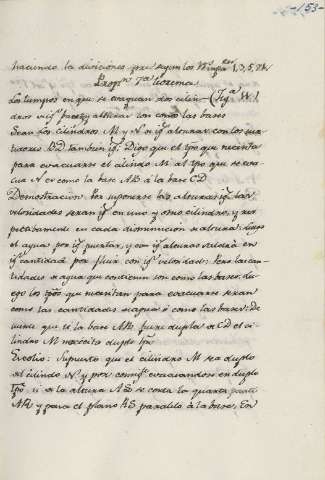 -153-
haciendo la diviciones pr. segun los Numeros 1, 3, 5, 7 &.
Propn. 7a. teorema
Los tiempos en que se evaquan dos cilin- (Figa.
dros de igs. puertas y alturas son como las bases
Sean los cilindros M y N de igs. alturas con los sur-
tidores B D tambien igs. Digo que el tpo. que necesita
para evacuarse el cilindro M al tpo. que se eva-
cua N es como la base AB à la base CD
Demostracion. Por suponerse las alturas igs. las
velosidades seran igs. en uno y otro cilindro, y res-
pectibamente en cada disminucion de altura: luego
el agua por igs. puertas, y con igs. alturas saldrà en
ig. cantidad por fluir con ig. velosidad: Pero las can-
tidades de agua que contienen son como las bases, lu-
ego los tpos. que necesitan para evacuarse seran
como las cantidades de agua ó como las bases: De
suerte que si la base AB fuere dupla de CD el ci-
lindro M necesita duplo tpo.
Escolio: Supuesto que el cilindro M sea duplo
del cilindro N y por consigte. evacuandose en duplo
tpo. si de la altura AB se corta la quarta parte
AR y pasa el plano RS paralelo à la base. En